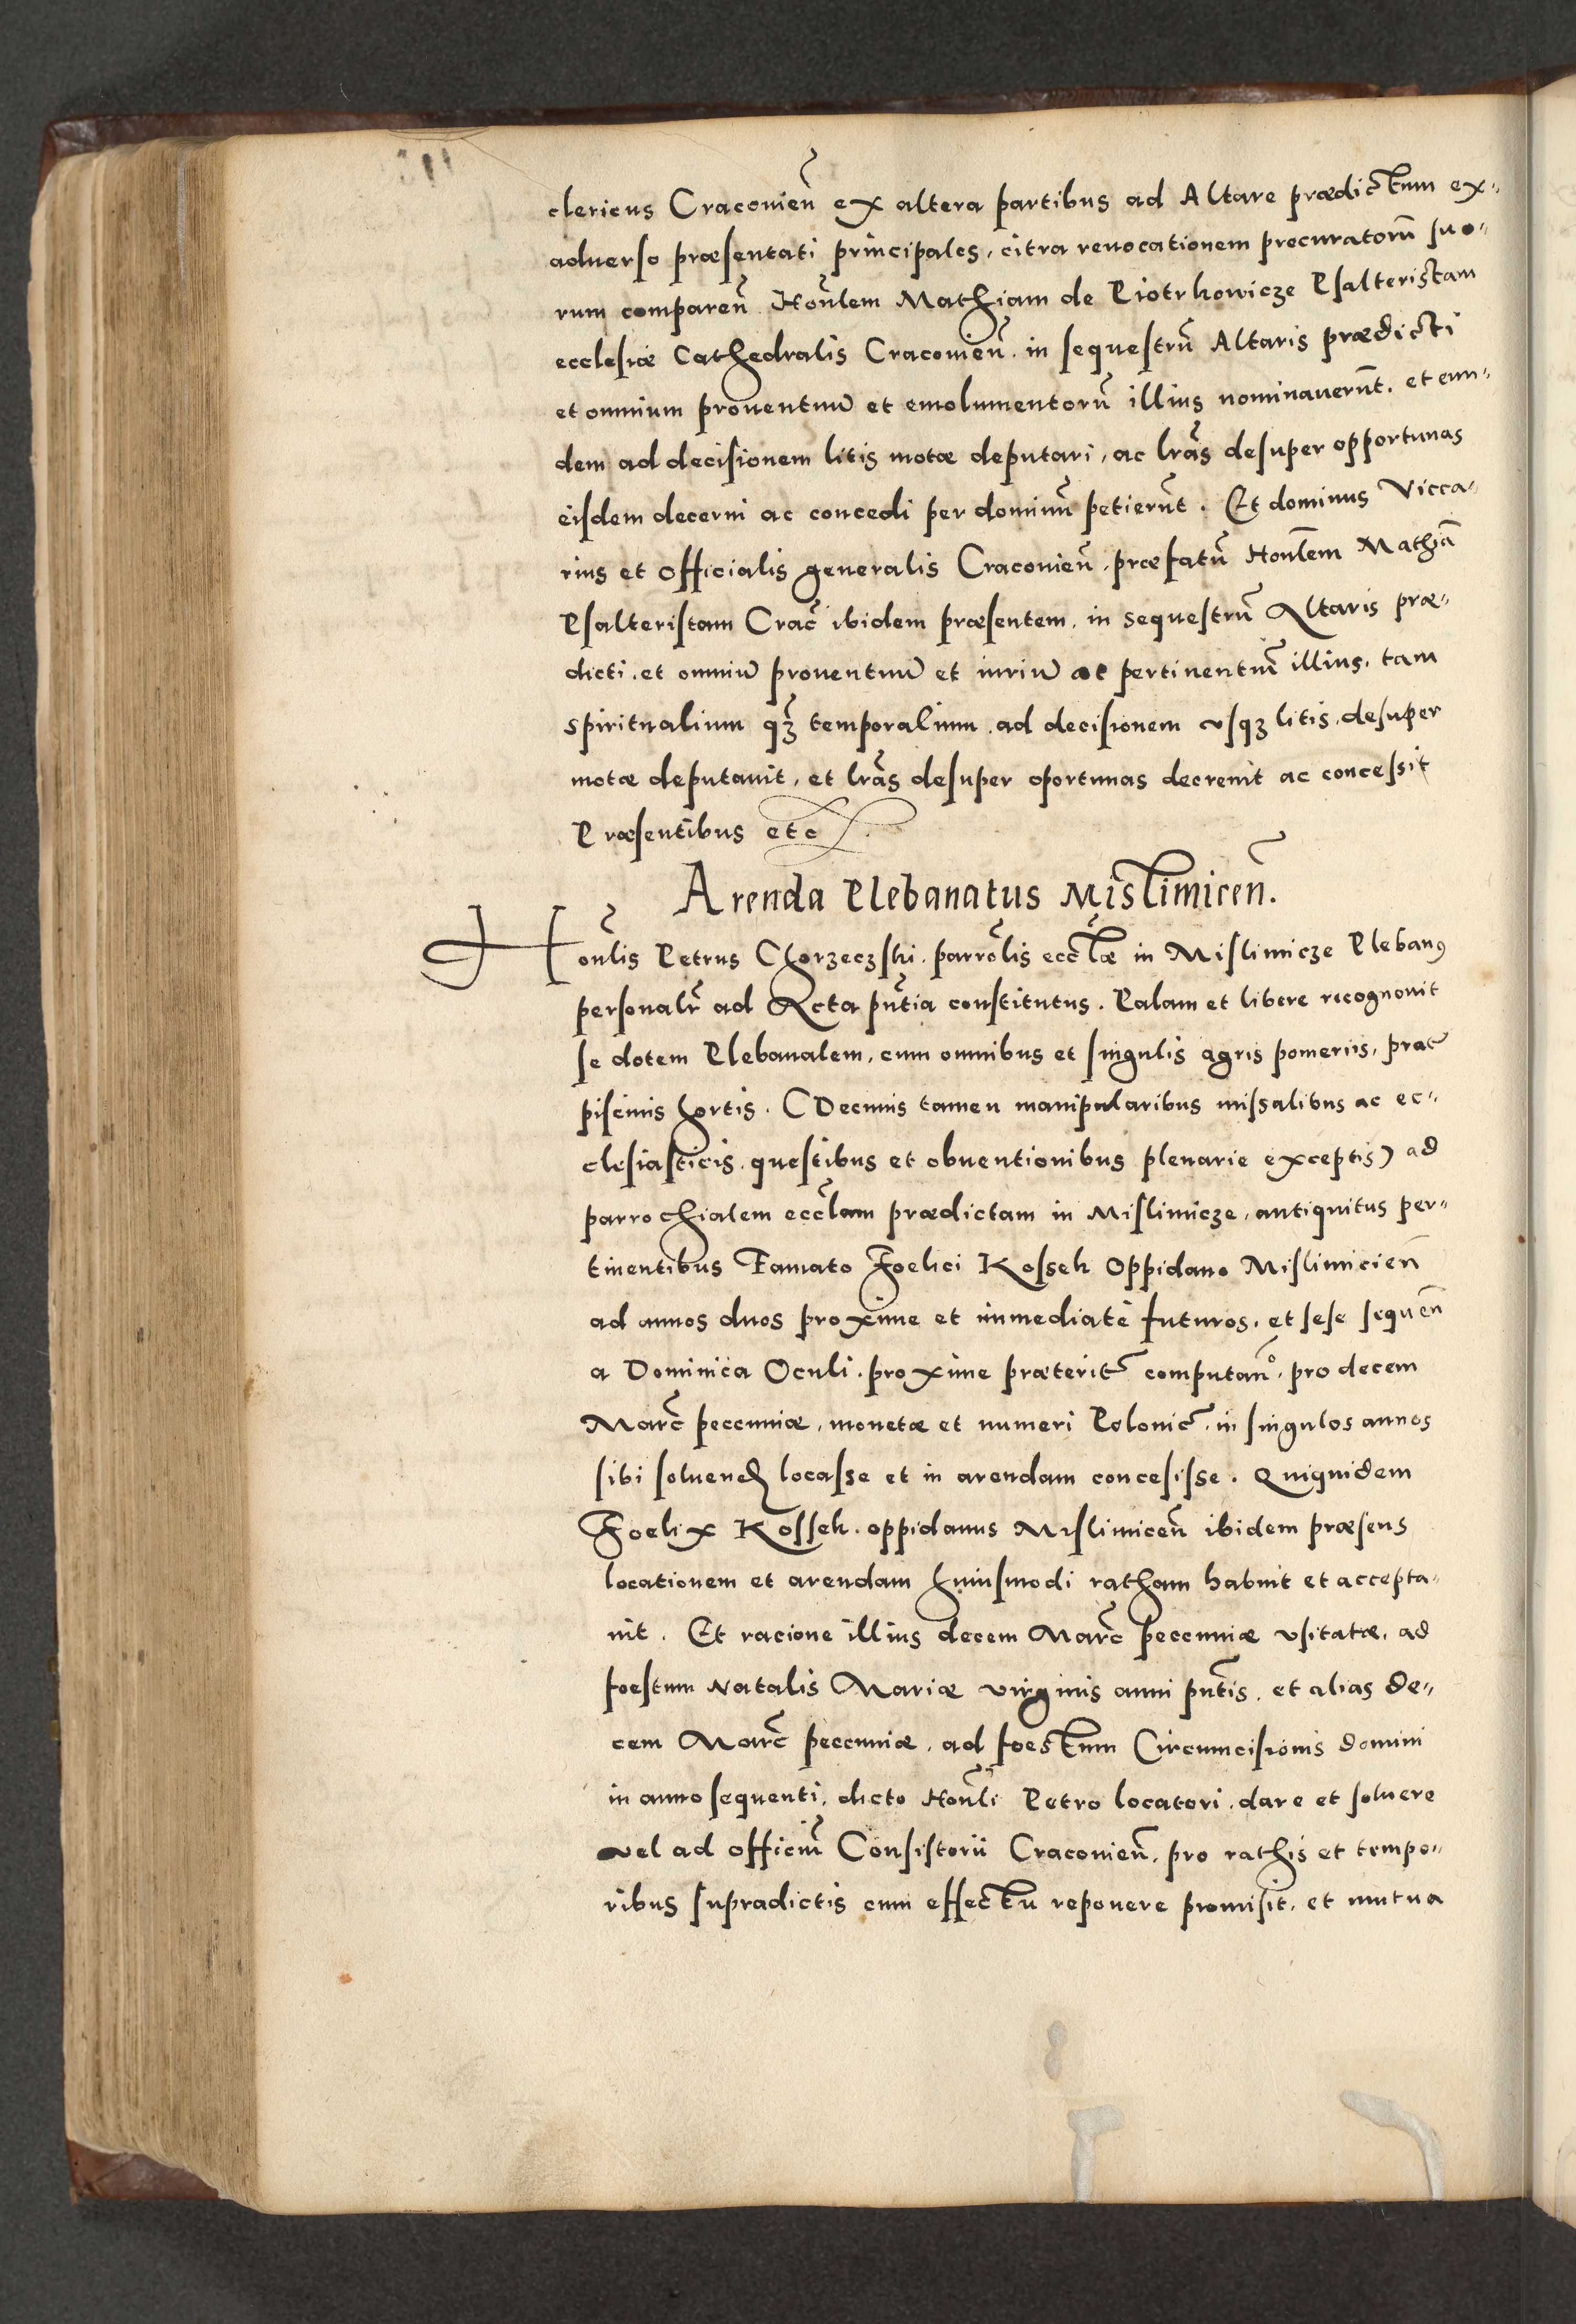 clericus Craconień ex altera partibus ad Altare prædictum ex„
aduerso præsentati principales, citra reuocationem procuratorū suo„
rum compareń Honłem Mathiam de Piotrkowicze Psalteristam
ecclesiæ Cathedralis Craconień. in sequestrū Altaris prædicti
et omnium prouentuū et emolumentorū illius nominauerūt. et eun„
dem ad decisionem litis motæ deputari, ac lrās desuper opportunas
eisdem decerni ac concedi per dominū petierūt. Et dominus Vicca„
rius et officialis generalis Craconień, præfatū Honlem Mathiā
Psalteristam Crac̄ ibidem præsentem, in sequestrū Altaris præ„
dicti, et omniū prouentuū et iuriū ac pertinentiū illius, tam
spiritualium qꝫ temporalium, ad decisionem usqꝫ litis, desuper
motæ deputauit, et lrās desuper oportunas decreuit ac concessit
Præsentibus etc
Arenda Plebanatus Mislimiceń.
Honlis Petrus Chorzeczski, parrōlis eccłæ in Mislimicze Plebanꝰ
personalr̄ ad Acta pn̄tia constitutus. Palam et libere recognouit
se dotem Plebanalem, cum omnibus et singulis agris pomeriis, prat̄
piscinis hortis. (Decimis tamen manipularibus missalibus ac ec„
clesiasticis, questibus et obuentionibus plenarie exceptis) ad
parrochialem eccłam prædictam in Mislimicze, antiquitus per„
tinentibus Famato Foelici Kossek oppidano Mislimicień
ad annos duos proxime et immediatè futuros, et sese sequeń
a Dominica Oculi, proxime præterit̄ computań°, pro decem
Marc̄ peccuniæ, monetæ et numeri Polonic̄, in singulos annos
sibi soluenđ locasse et in arendam concesisse. Quiquidem
Foelix Kossek, oppidanus Mislimiceń ibidem præsens
locationem et arendam huiusmodi ratham habuit et accepta„
uit. Et racione illius decem Marc̄ peccuniæ usitatæ, ad
foestum Natalis Mariæ virginis anni pn̄tis, et alias de„
cem Marc̄ peccuniæ, ad foestum Circumcisionis domini
in anno sequenti, dicto Honłi Petro locatori, dare et soluere
vel ad officiū Consistorii Craconień, pro rathis et tempo„
ribus supradictis cum effectu reponere promisit, et mutua